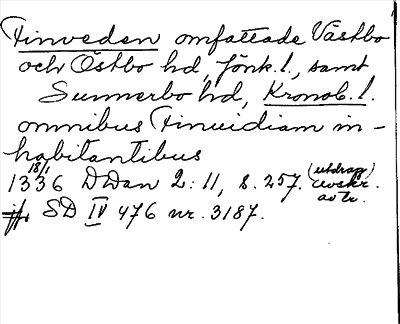 Finveden omfattade Västbo
och Östbo hd, Jönk. l., samt
Sunnerbo hd, Kronob. l.
omnibus Finuidiam in-
habitantibus
18/1
1336 DDan 2:11, s. 257. (utdrag)
avskr.
av tr.
jfr SD IV 476 nr. 3187.